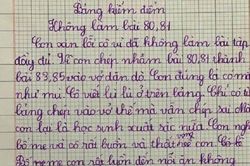 Bảng kiểm điểm
Không làm bài 80,81
Con xin lỗi cô vì đã không làm bài tập
đầy đủ. Vì con chép nhầm bài 80,81 thành
bài 83,85 vào vở dặn dò. Con đúng là con
như mù. Cô viết lù lù ở trên bảng. Chỉ có
bảng chép vào vở thế mà vẫn chép sai. Mà
con lại là học sinh xuất sắc nữa. Con nghĩ
bố mẹ và cô rất buồn và thất vọng con. Cô
Bố mẹ con và luôn dặn nói ăn không